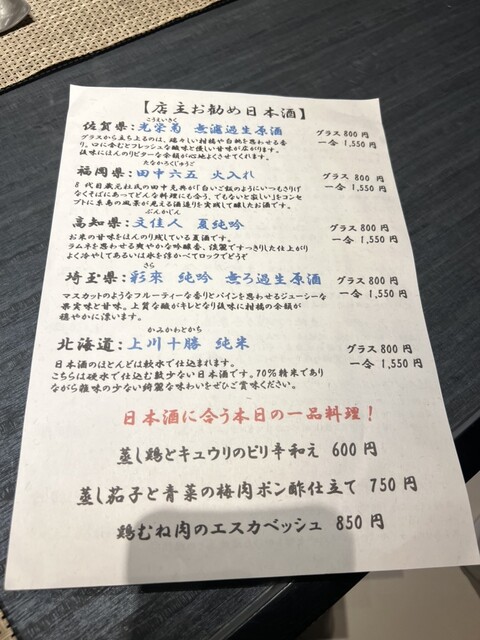 【店主お勧め日本酒】
こうえいぎく
佐賀県：光栄菊 無濾過生原酒 グラス 800 円
一合 1,550 円
グラスから立ち上るのは、瑞々しい柑橘や白桃を思わせる香
り。口に含むとフレッシュな酸味と優しい甘味が広がります。
後味にはほんのりビターな余韻が心地よくさせてくれます。
たなかろくじゅうご
福岡県：田中六五 火入れ グラス 800 円
一合 1,550 円
8 代目蔵元杜氏の田中克典が「白いご飯のようにいつもさりげ
なくそばにあってどんな料理にも合う、でもないと寂しい」をコンセ
プトに糸島の風景が見える酒造りを実践して醸したお酒です。
ぶんかじん
高知県：文佳人 夏純吟 グラス 800 円
一合 1,550 円
お米の甘味をほんのり残している夏酒です。
ラムネを思わせる爽やかな吟醸香、淡麗ですっきりした仕上がり
よく冷やしてあるいは氷を浮かべてロックでどうぞ
さら
埼玉県：彩來 純吟 無ろ過生原酒 グラス 800 円
一合 1,550 円
マスカットのようなフルーティーな香りとパインを思わせるジューシーな
果実味と甘味。上質な酸がキレとなり後味に柑橘の余韻が
穏やかに漂います。
かみかわとかち
北海道：上川十勝 純米 グラス 800 円
一合 1,550 円
日本酒のほとんどは軟水で仕込まれます。
こちらは硬水で仕込む数少ない日本酒です。70％精米であり
ながら雑味の少ない綺麗な味わいをぜひご賞味ください。
日本酒に合う本日の一品料理！
蒸し鶏とキュウリのピリ辛和え 600 円
蒸し茄子と青菜の梅肉ポン酢仕立て 750 円
鶏むね肉のエスカベッシュ 850 円